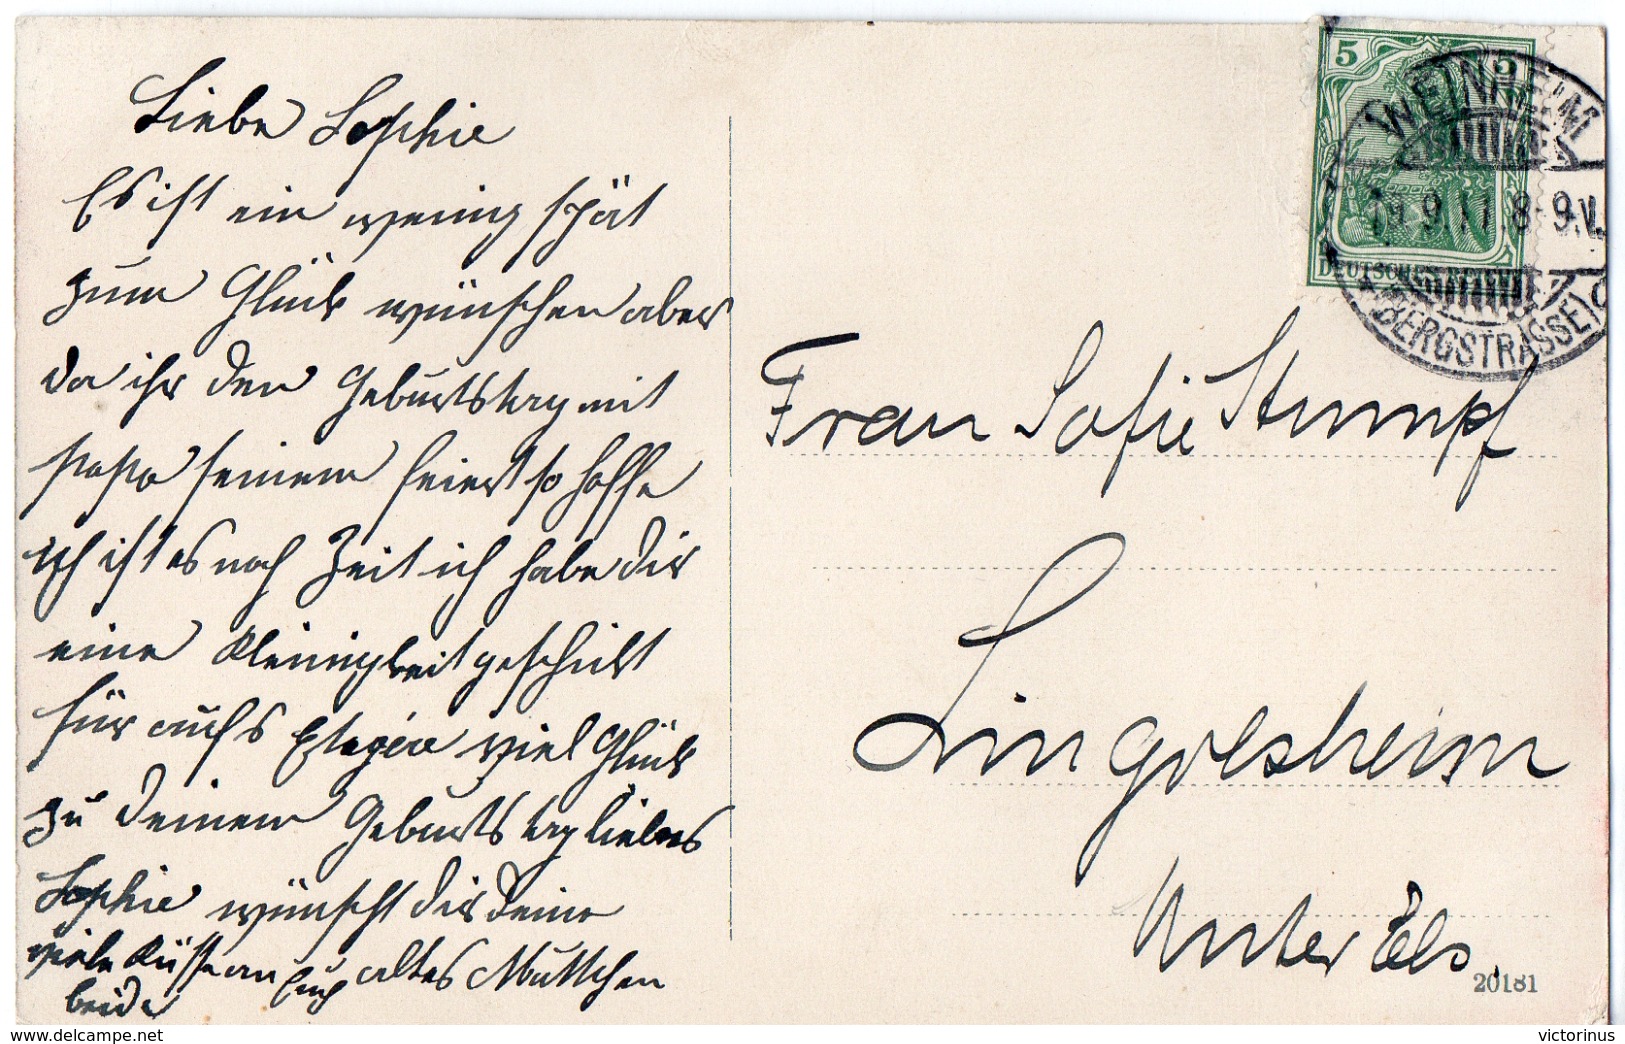 Liebe Sophie
Es ist ein wenig spät
zum Glück wünschen aber
da ihr den Geburtstag mit
papa seinem feiert so hoffe
ich ist es noch Zeit ich habe dir
eine Kleinigkeit geschickt
für aufs Etagére viel Glück
zu deinem Geburtstag liebes
Sophie wünscht dir deine
viele Küsse an Euch altes Muttchen
beide
5 5
DEUTSCHES REICH
WEINHEIM
19.9.11.8-9.V.
(BERGSTRASSE)
Frau Sofie Stumpf
Lingolsheim
Unter Els.
20181
victorinus